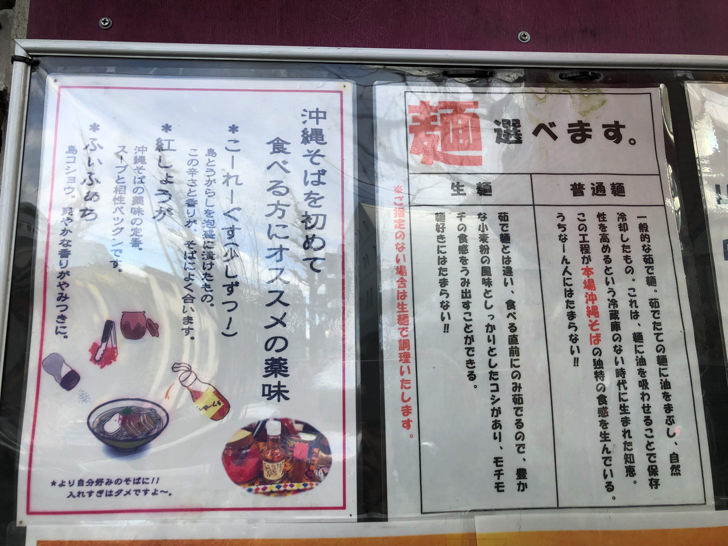 沖縄そばを初めて
食べる方にオススメの薬味
*こーれーぐす(少しずつ!)
島とうがらしを泡盛に漬けたもの。
この辛さと香りが、そばによく合います。
*紅しょうが
沖縄そばの薬味の定番。
スープと相性バツグンです。
*ふぃふぁち
島コショウ。爽やかな香りがやみつきに。
*より自分好みのそばに!!
入れすぎはダメですよ〜。
麺選べます。
普通麺
一般的な茹で麺。茹でたての麺に油をまぶし、自然
冷却したもの。これは、麺に油を吸わせることで保存
性を高めるという冷蔵庫のない時代に生まれた知恵。
この工程が本場沖縄そばの独特の食感を生んでいる。
うちなーん人にはたまらない!!
生麺
茹で麺とは違い、食べる直前にのみ茹でるので、豊か
な小麦粉の風味としっかりとしたコシがあり、モチモ
チの食感をうみ出すことができる。
麺好きにはたまらない!!
※ご指定のない場合は生麺で調理いたします。